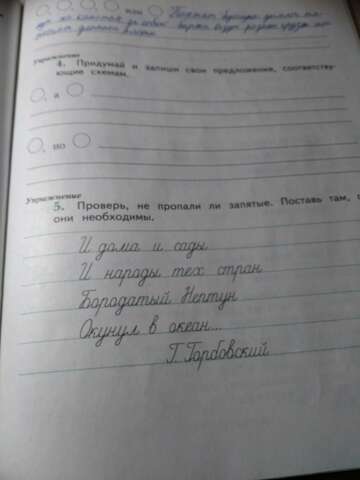 или
Упражнение
4. Придумай и запиши свои предложения, соответству-
ющие схемам.
, а
, но
Упражнение
5. Проверь, не пропали ли запятые. Поставь там, г
они необходимы.
И дома и сады
И народы тех стран
Бородатый Нептун
Окунул в океан...
Г. Горбовский